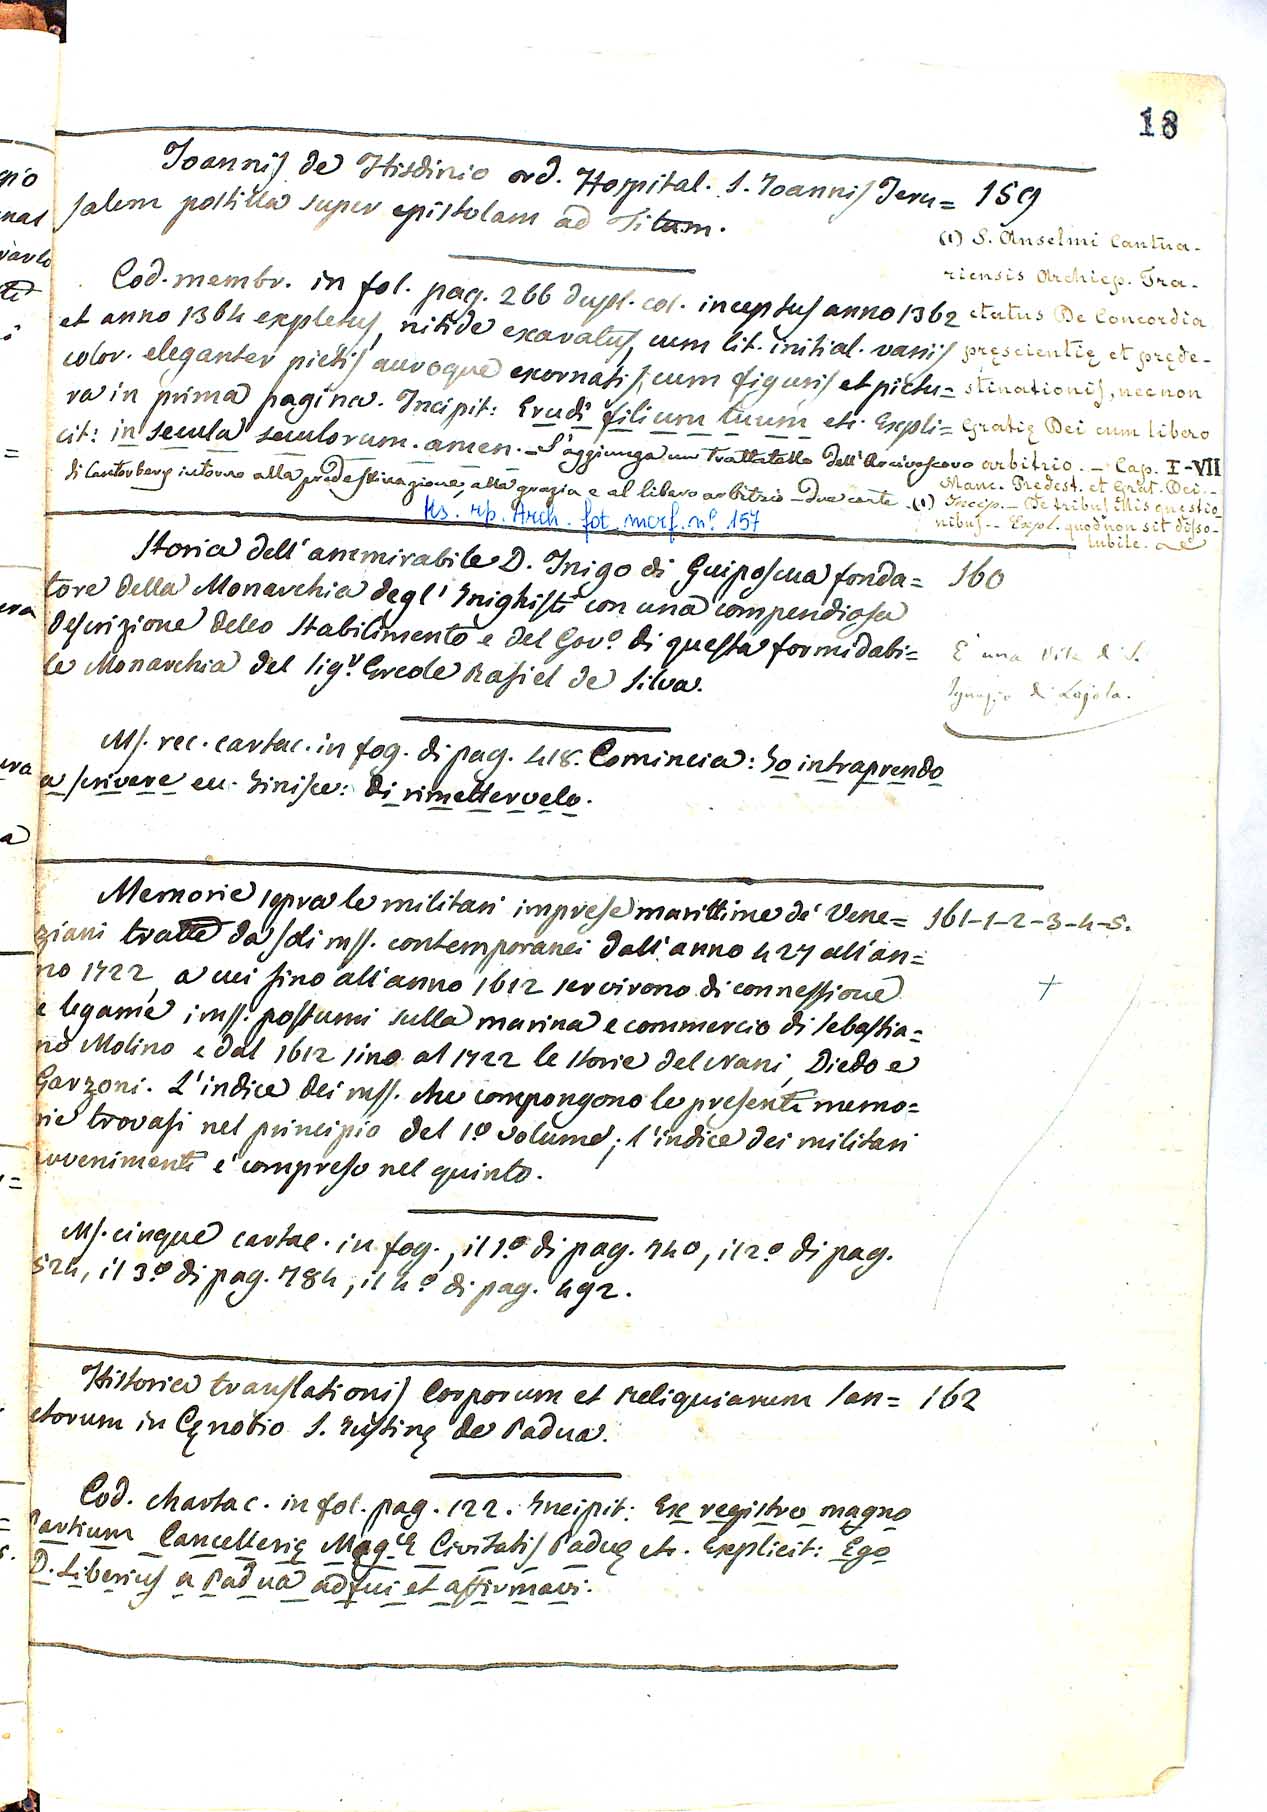 18
Joannis de Hisdinio ord. Hospital. S. Joannis Jeru= 159
salem postilla super epistolam ad Titum.
Cod. membr. in fol. pag. 266 dupl. col. inceptus anno 1362
et anno 1364 expletus, nitide exaratus, cum lit. initial. variis
color. eleganter pictis auroque exornatis, cum figuris et pictu=
ra in prima pagina. Incipit: Erudi filium tuum etc. Expli=
cit: in secula seculorum. amen. - S'aggiunga un trattatello dell'Arcivescovo
di Cantorbery intorno alla predestinazione, alla grazia e al libero arbitrio - due carte. (1)
(1) S. Anselmi Cantua-
riensis Archiep. Tra-
ctatus De Concordia
pręscientię et pręde-
stinationis, necnon
Gratię Dei cum libero
arbitrio. - Cap. I-VII
Manc. Predest. et Grat. Dei. -
Incip. - De tribus illis questio
nibus - Expl. quod non sit disso-
lubile.
Ks. rp. Arch. fot. morf. nº 157
Storia dell'ammirabile D. Inigo di Guiposcua fonda= 160
tore della Monarchia degl'Inighisti con una compendiosa
descrizione dello Stabilimento e del Govº. di questa formidabi=
le Monarchia del Sigr. Ercole Rasiel de Silva.
E' una Vita di S.
Ignazio di Lojola.
Ms. rec. cartac. in fog. di pag. 418. Comincia: Io intraprendo
a scrivere ec. Finisce: di rimettervelo.
Memorie sopra le militari imprese marittime de' Vene= 161-1-2-3-4-5.
ziani tratte da sdi mss. contemporanei dall'anno 427 all'an=
no 1722, a cui fino all'anno 1612 servirono di connessione
e legame i mss. postumi sulla marina e commercio di Sebastia=
no Molino e dal 1612 sino al 1722 le storie del Nani, Diedo e
Garzoni. L'indice dei mss. che compongono le presenti memo=
rie trovasi nel principio del 1º volume; l'indice dei militari
avvenimenti e' compreso nel quinto.
+
Ms. cinque cartac. in fog., il 1º di pag. 740, il 2º di pag.
524, il 3º di pag. 784, il 4º di pag. 492.
Historica translationis Corporum et Reliquiarum San= 162
ctorum in Cęnobio S. Justinę de Padua.
Cod. chartac. in fol. pag. 122. Incipit: Ex registro magno
Partium Cancellerię Magcę Civitatis Padue etc. Explicit: Ego
D. Liberius a Padua adfui et affirmavi.